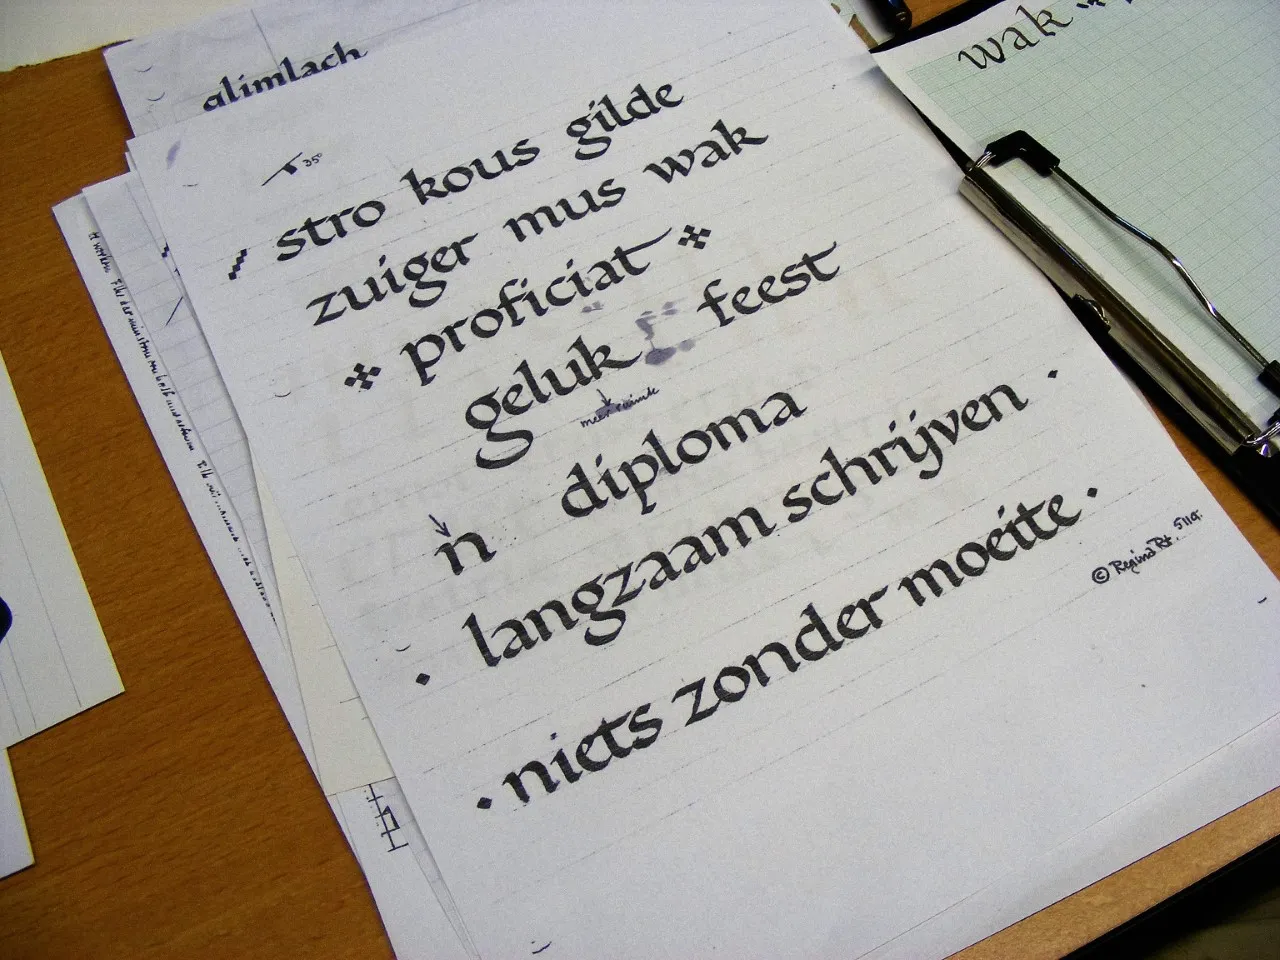 alimlach
wak
35°
stro kous gilde
zuiger mus wak
proficiat
geluk feest
meer ruimte
diploma
n
langzaam schrijven
niets zonder moeite
© Regina Rt.